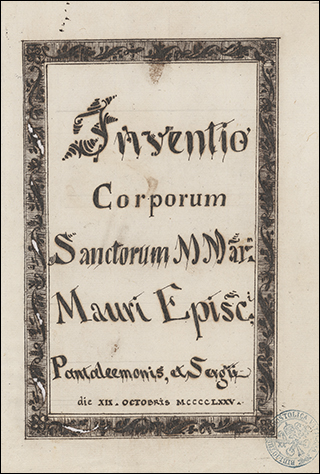 Inventio
Corporum
Sanctorum M Mar.
Mauri Episc.
Pantaleemonis, et Sergii
die XIX. OCTOBRIS MCCCCLXXV.